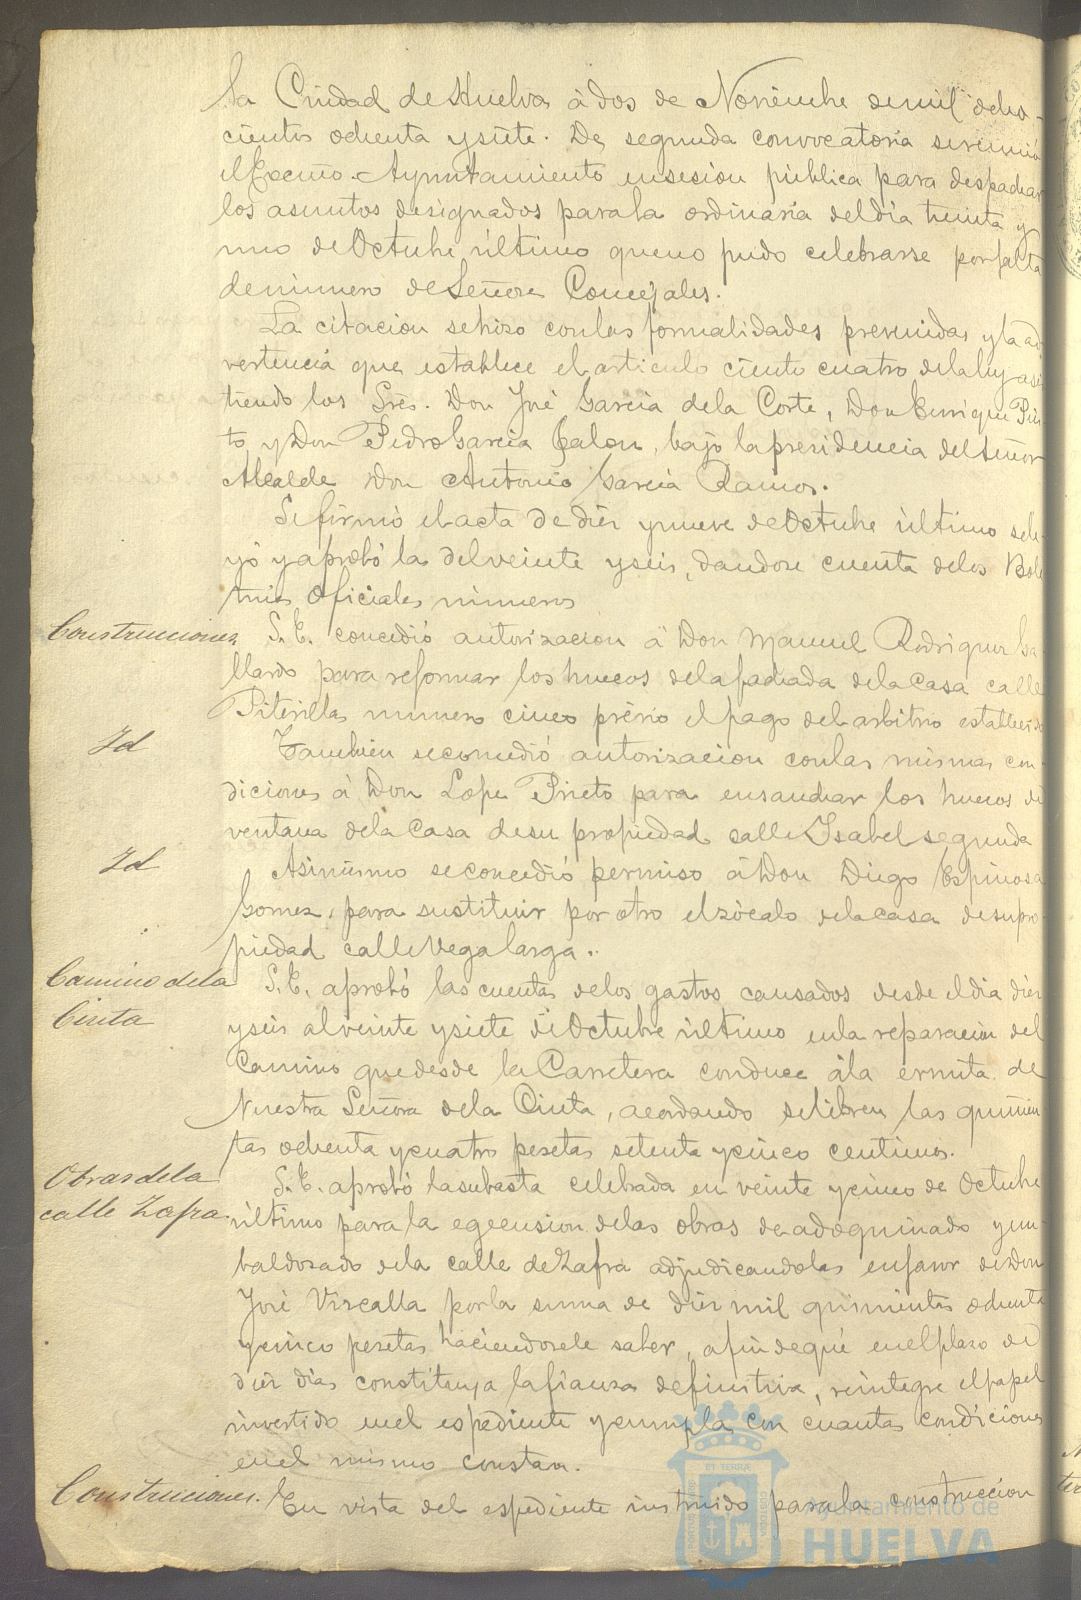 la Ciudad de Huelva à dos de Noviembre de mil ocho-
cientos ochenta y siete. De segunda convocatoria se reunió
el Excmo. Ayuntamiento en sesion pública para despachar
los asuntos designados para la ordinaria del dia treinta y
uno de Octubre último que no pudo celebrarse por falta
de número de Señores Concejales.
La citacion se hizo con las formalidades prevenidas y la ad-
vertencia que establece el articulo ciento cuatro de la ley asis
tiendo los Sres. Don José Garcia de la Corte, Don Enrique Pin
to, y Don Pedro Garcia Jalon, bajo la presidencia del Señor
Alcalde Don Antonio Garcia Ramos.
Se firmó el acta de diez y nueve de Octubre último se le-
yó y aprobó la del veinte y seis, dandose cuenta de los Bole
tines Oficiales números
Construcciones. S. E. concedió autorizacion à Don Manuel Rodriguez Ga-
llardo para reformar los huecos de la fachada de la casa calle
Piterilla número cinco prévio el pago del arbitrio establecido
Id Tambien se concedió autorizacion con las mismas con-
diciones à Don Lope Prieto para ensanchar los huecos de
ventana de la casa de su propiedad calle Isabel segunda
Id Asimismo se concedió permiso à Don Diego Espinosa
Gomez, para sustituir por otro el zócalo de la casa de su pro-
piedad calle Vega larga.
Camino de la S. E. aprobó las cuentas de los gastos causados desde el dia diez
Cinta y seis al veinte y siete de Octubre último en la reparacion del
Camino que desde la Carretera conduce à la ermita de
Nuestra Señora de la Cinta, acordando se libren las quinien
tas ochenta y cuatro pesetas setenta y cinco centimos.
Obras de la S. E. aprobó la subasta celebrada en veinte y cinco de Octubre
calle Zafra. último para la egecusion de las obras de adoquinado y em-
baldosado de la calle de Zafra adjudicandolas en favor de Don
José Vizcalla por la suma de diez mil quinientas ochenta
y cinco pesetas haciendosele saber, a fin de que en el plazo de
diez dias constituya la fianza definitiva, reintegre el papel
invertido en el espediente y cumpla con cuantas condiciones
en el mismo constan.
Construcciones. En vista del espediente instruido para la construccion
Ayuntamiento de
HUELVA